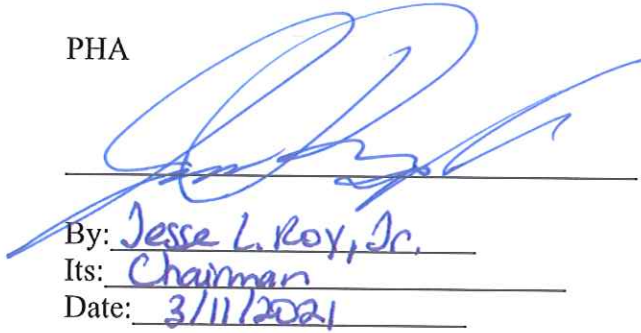 PHA
By: Jesse L. Roy, Jr.
Its: Chairman
Date: 3/11/2021